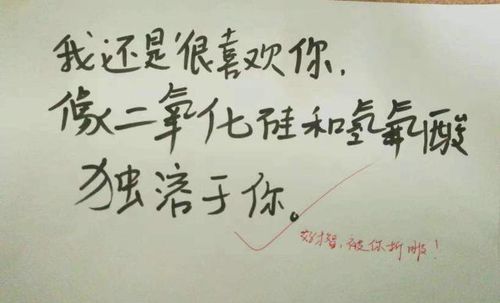 我还是很喜欢你,
像二氧化硅和氢氟酸
独溶于你。
好才智,被你折服!